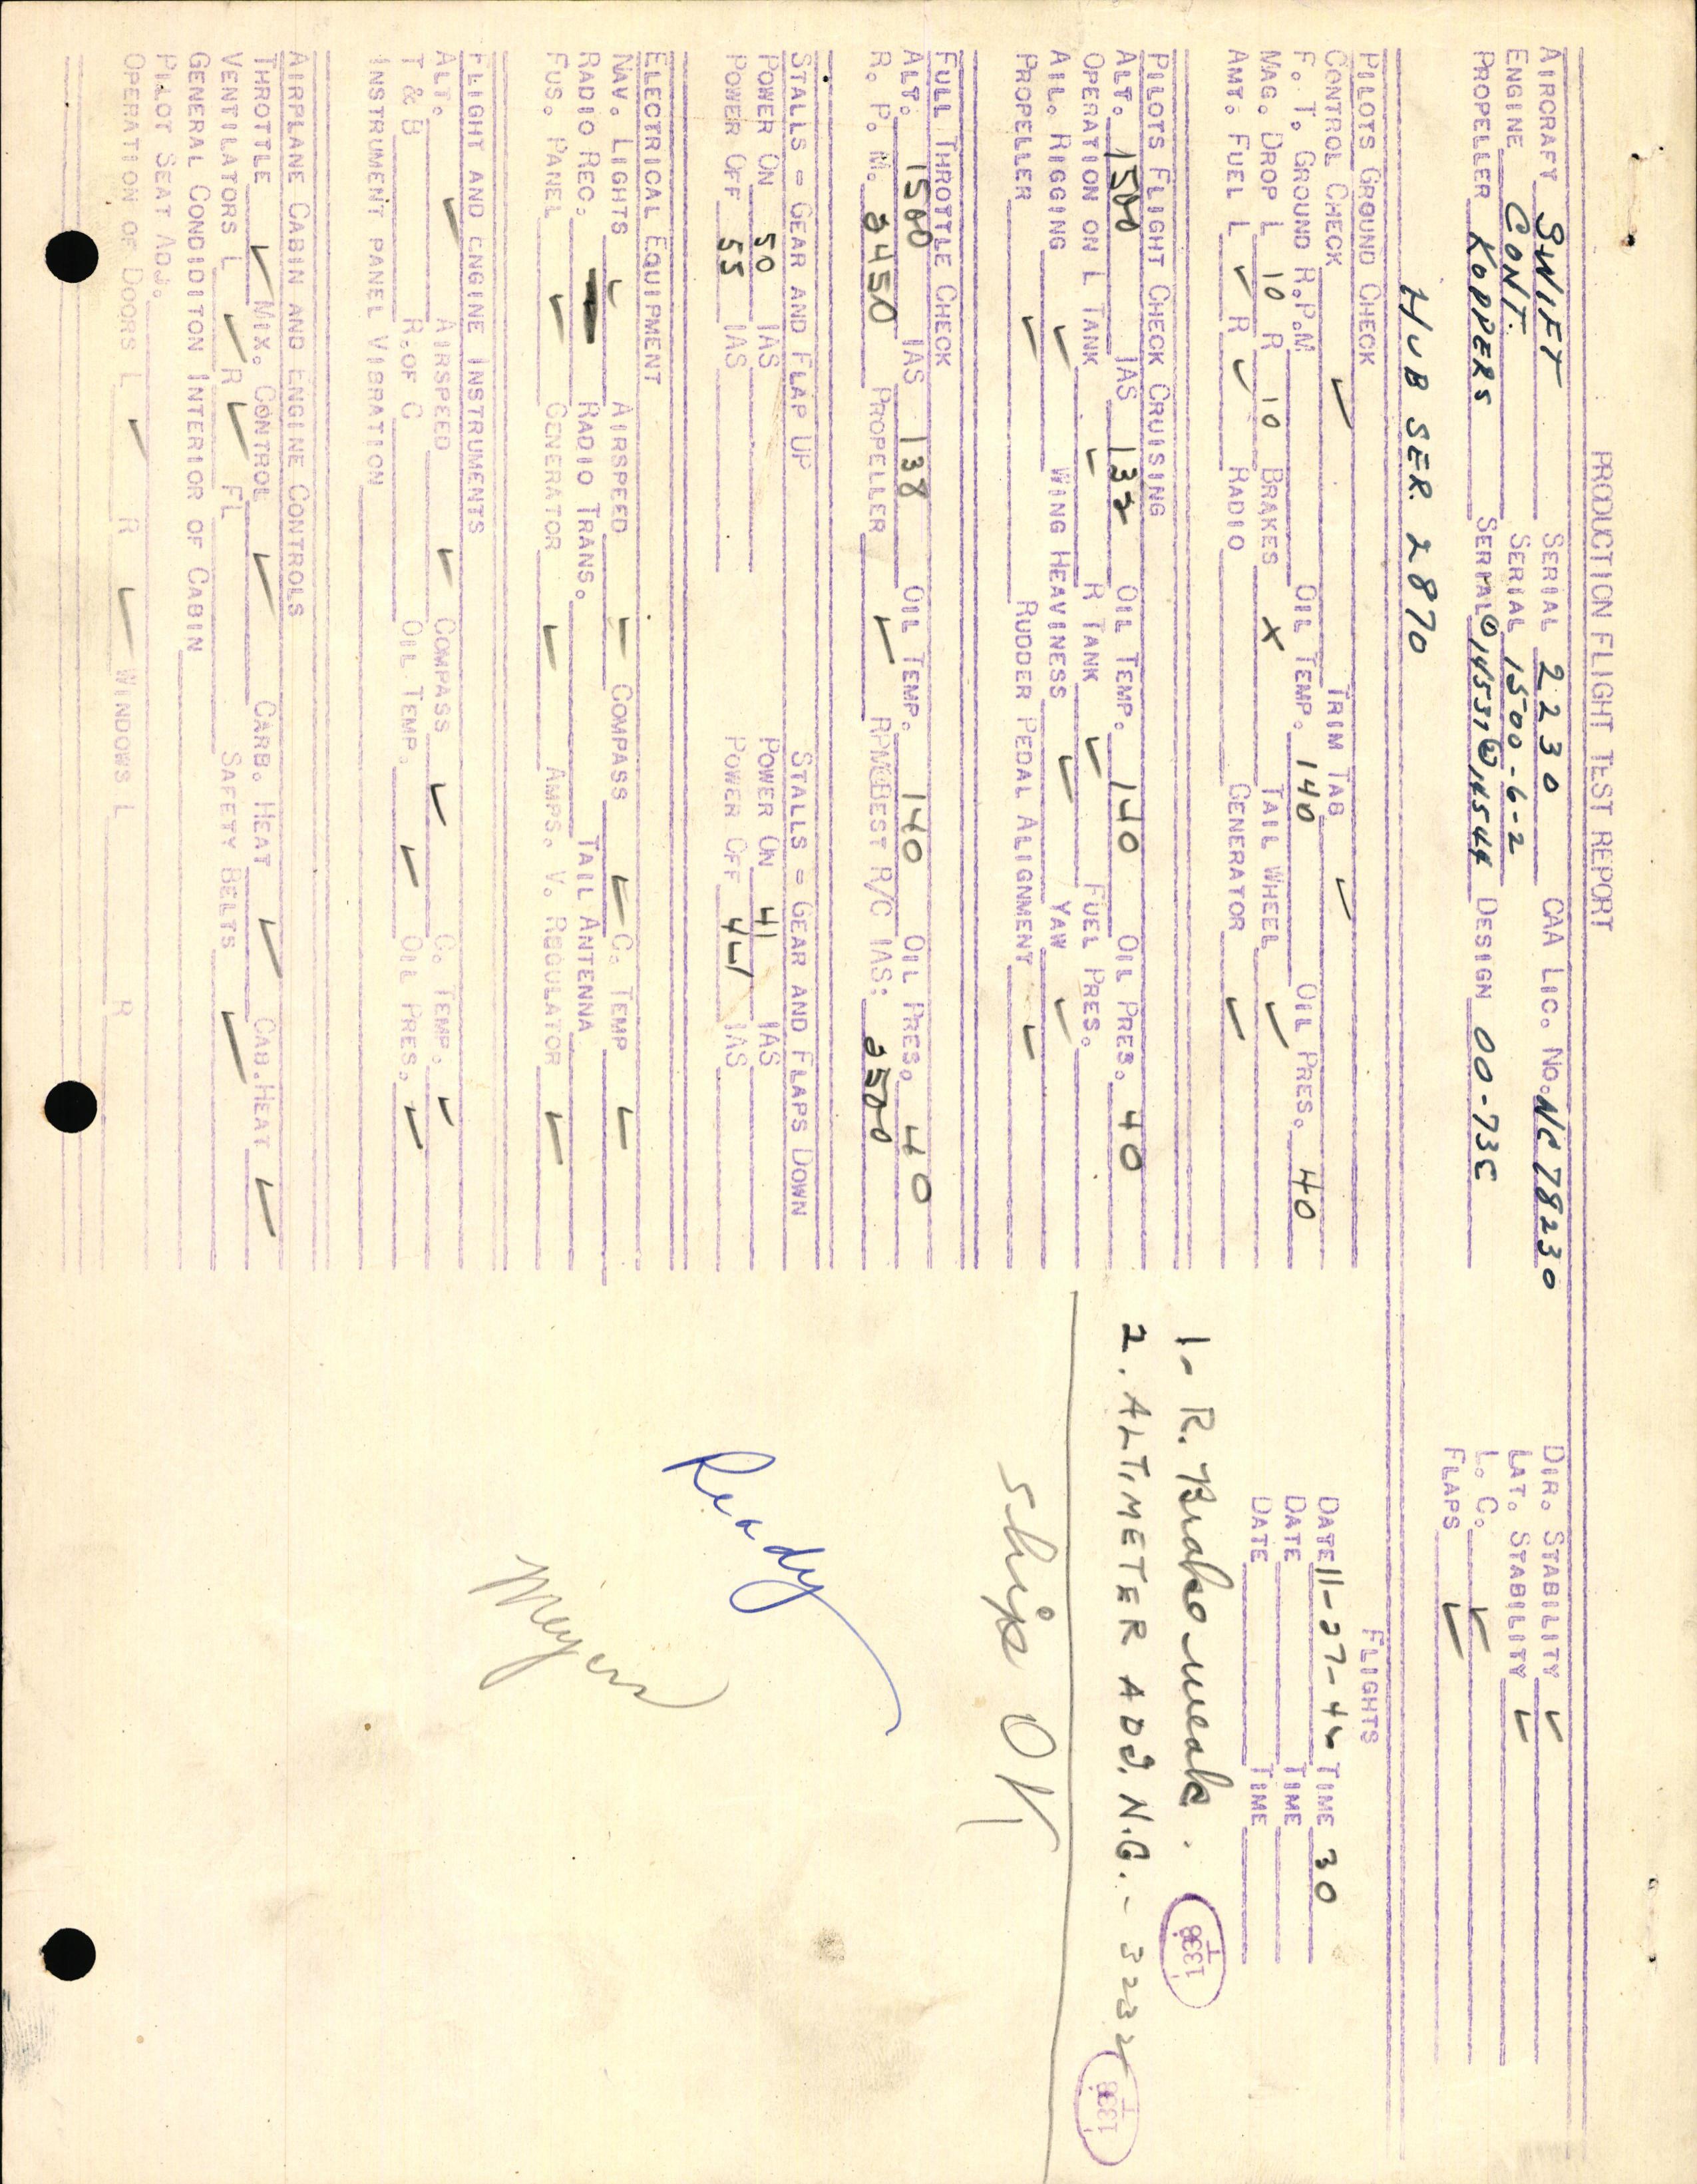 PRODUCTION FLIGHT TEST REPORT
AIRCRAFT SWIFT SERIAL 2230 CAA LIC. NO. NC 78230
ENGINE CONT. SERIAL 1500-6-2
PROPELLER KOPPERS SERIAL ① 14537 ② 14544 DESIGN 00-73E
HUB SER 2870
DIR. STABILITY ✓
LAT. STABILITY ✓
L. C. ✓
FLAPS ✓
PILOTS GROUND CHECK
CONTROL CHECK ✓ TRIM TAB ✓
F. T. GROUND R.P.M OIL TEMP. 140 OIL PRES. 40
MAG. DROP L 10 R 10 BRAKES X TAIL WHEEL ✓
AMT. FUEL L ✓ R ✓ RADIO GENERATOR ✓
PILOTS FLIGHT CHECK CRUISING
ALT. 1500 IAS 132 OIL TEMP. 140 OIL PRES. 40
OPERATION ON L TANK ✓ R TANK ✓ FUEL PRES.
AIL. RIGGING ✓ WING HEAVINESS ✓ YAW ✓
PROPELLER ✓ RUDDER PEDAL ALIGNMENT ✓
FULL THROTTLE CHECK
ALT. 1500 IAS 138 OIL TEMP. 140 OIL PRES. 40
R. P. M. 2450 PROPELLER ✓ RPM@BEST R/C IAS: 2500
STALLS = GEAR AND FLAP UP STALLS = GEAR AND FLAPS DOWN
POWER ON 50 IAS POWER ON 41 IAS
POWER OFF 55 IAS POWER OFF 44 IAS
ELECTRICAL EQUIPMENT
NAV. LIGHTS ✓ AIRSPEED ✓ COMPASS ✓ C. TEMP ✓
RADIO REC. RADIO TRANS. TAIL ANTENNA
FUS. PANEL ✓ GENERATOR ✓ AMPS. V. REGULATOR ✓
FLIGHT AND ENGINE INSTRUMENTS
ALT. ✓ AIRSPEED ✓ COMPASS ✓ C. TEMP. ✓
T & B R. OF C OIL TEMP. ✓ OIL PRES. ✓
INSTRUMENT PANEL VIBRATION
AIRPLANE CABIN AND ENGINE CONTROLS
THROTTLE ✓ MIX. CONTROL ✓ CARB. HEAT ✓ CAB. HEAT ✓
VENTILATORS L ✓ R ✓ FL SAFETY BELTS ✓
GENERAL CONDITON INTERIOR OF CABIN
PILOT SEAT ADJ.
OPERATION OF DOORS L ✓ R ✓ WINDOWS L R
FLIGHTS
DATE 11-27-46 TIME 30
DATE TIME
DATE TIME
1- R. Brake weak.
2. ALTIMETER ADJ. N.G. - 3232
Ship OK
Ready
Meyers